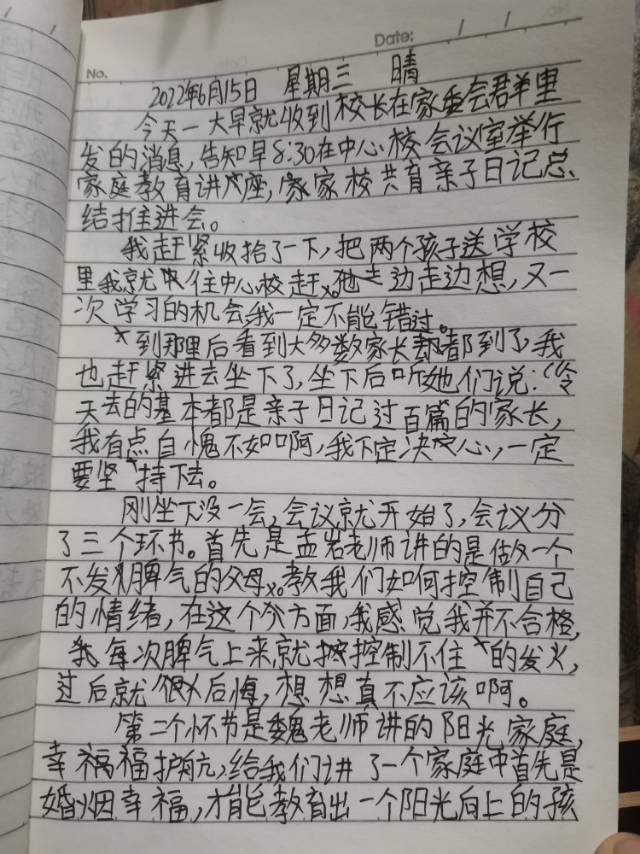 Date: / /
No.
2022年6月15日 星期三 晴
今天一大早就收到校长在家委会群里
发的消息,告知早8:30在中心校会议室举行
家庭教育讲座,家家校共育亲子日记总
结推进会。
我赶紧收拾了一下,把两个孩子送学校
里我就往中心校赶。边走边想,又一
次学习的机会我一定不能错过。
到那里后看到大多数家长都到了,我
也赶紧进去坐下了,坐下后听她们说:(今
天去的基本都是亲子日记过百篇的家长,
我有点自愧不如啊,我下定决心,一定
要坚持下去。
刚坐下没一会,会议就开始了,会议分
了三个环节。首先是孟岩老师讲的是做一个
不发脾气的父母。教我们如何控制自己
的情绪,在这个方面,我感觉我并不合格,
我每次脾气上来就控制不住的发火,
过后就很后悔,想想真不应该啊。
第二个怀节是魏老师讲的阳光家庭,
幸福福护航,给我们讲了一个家庭中首先是
婚烟幸福,才能教育出一个阳光向上的孩